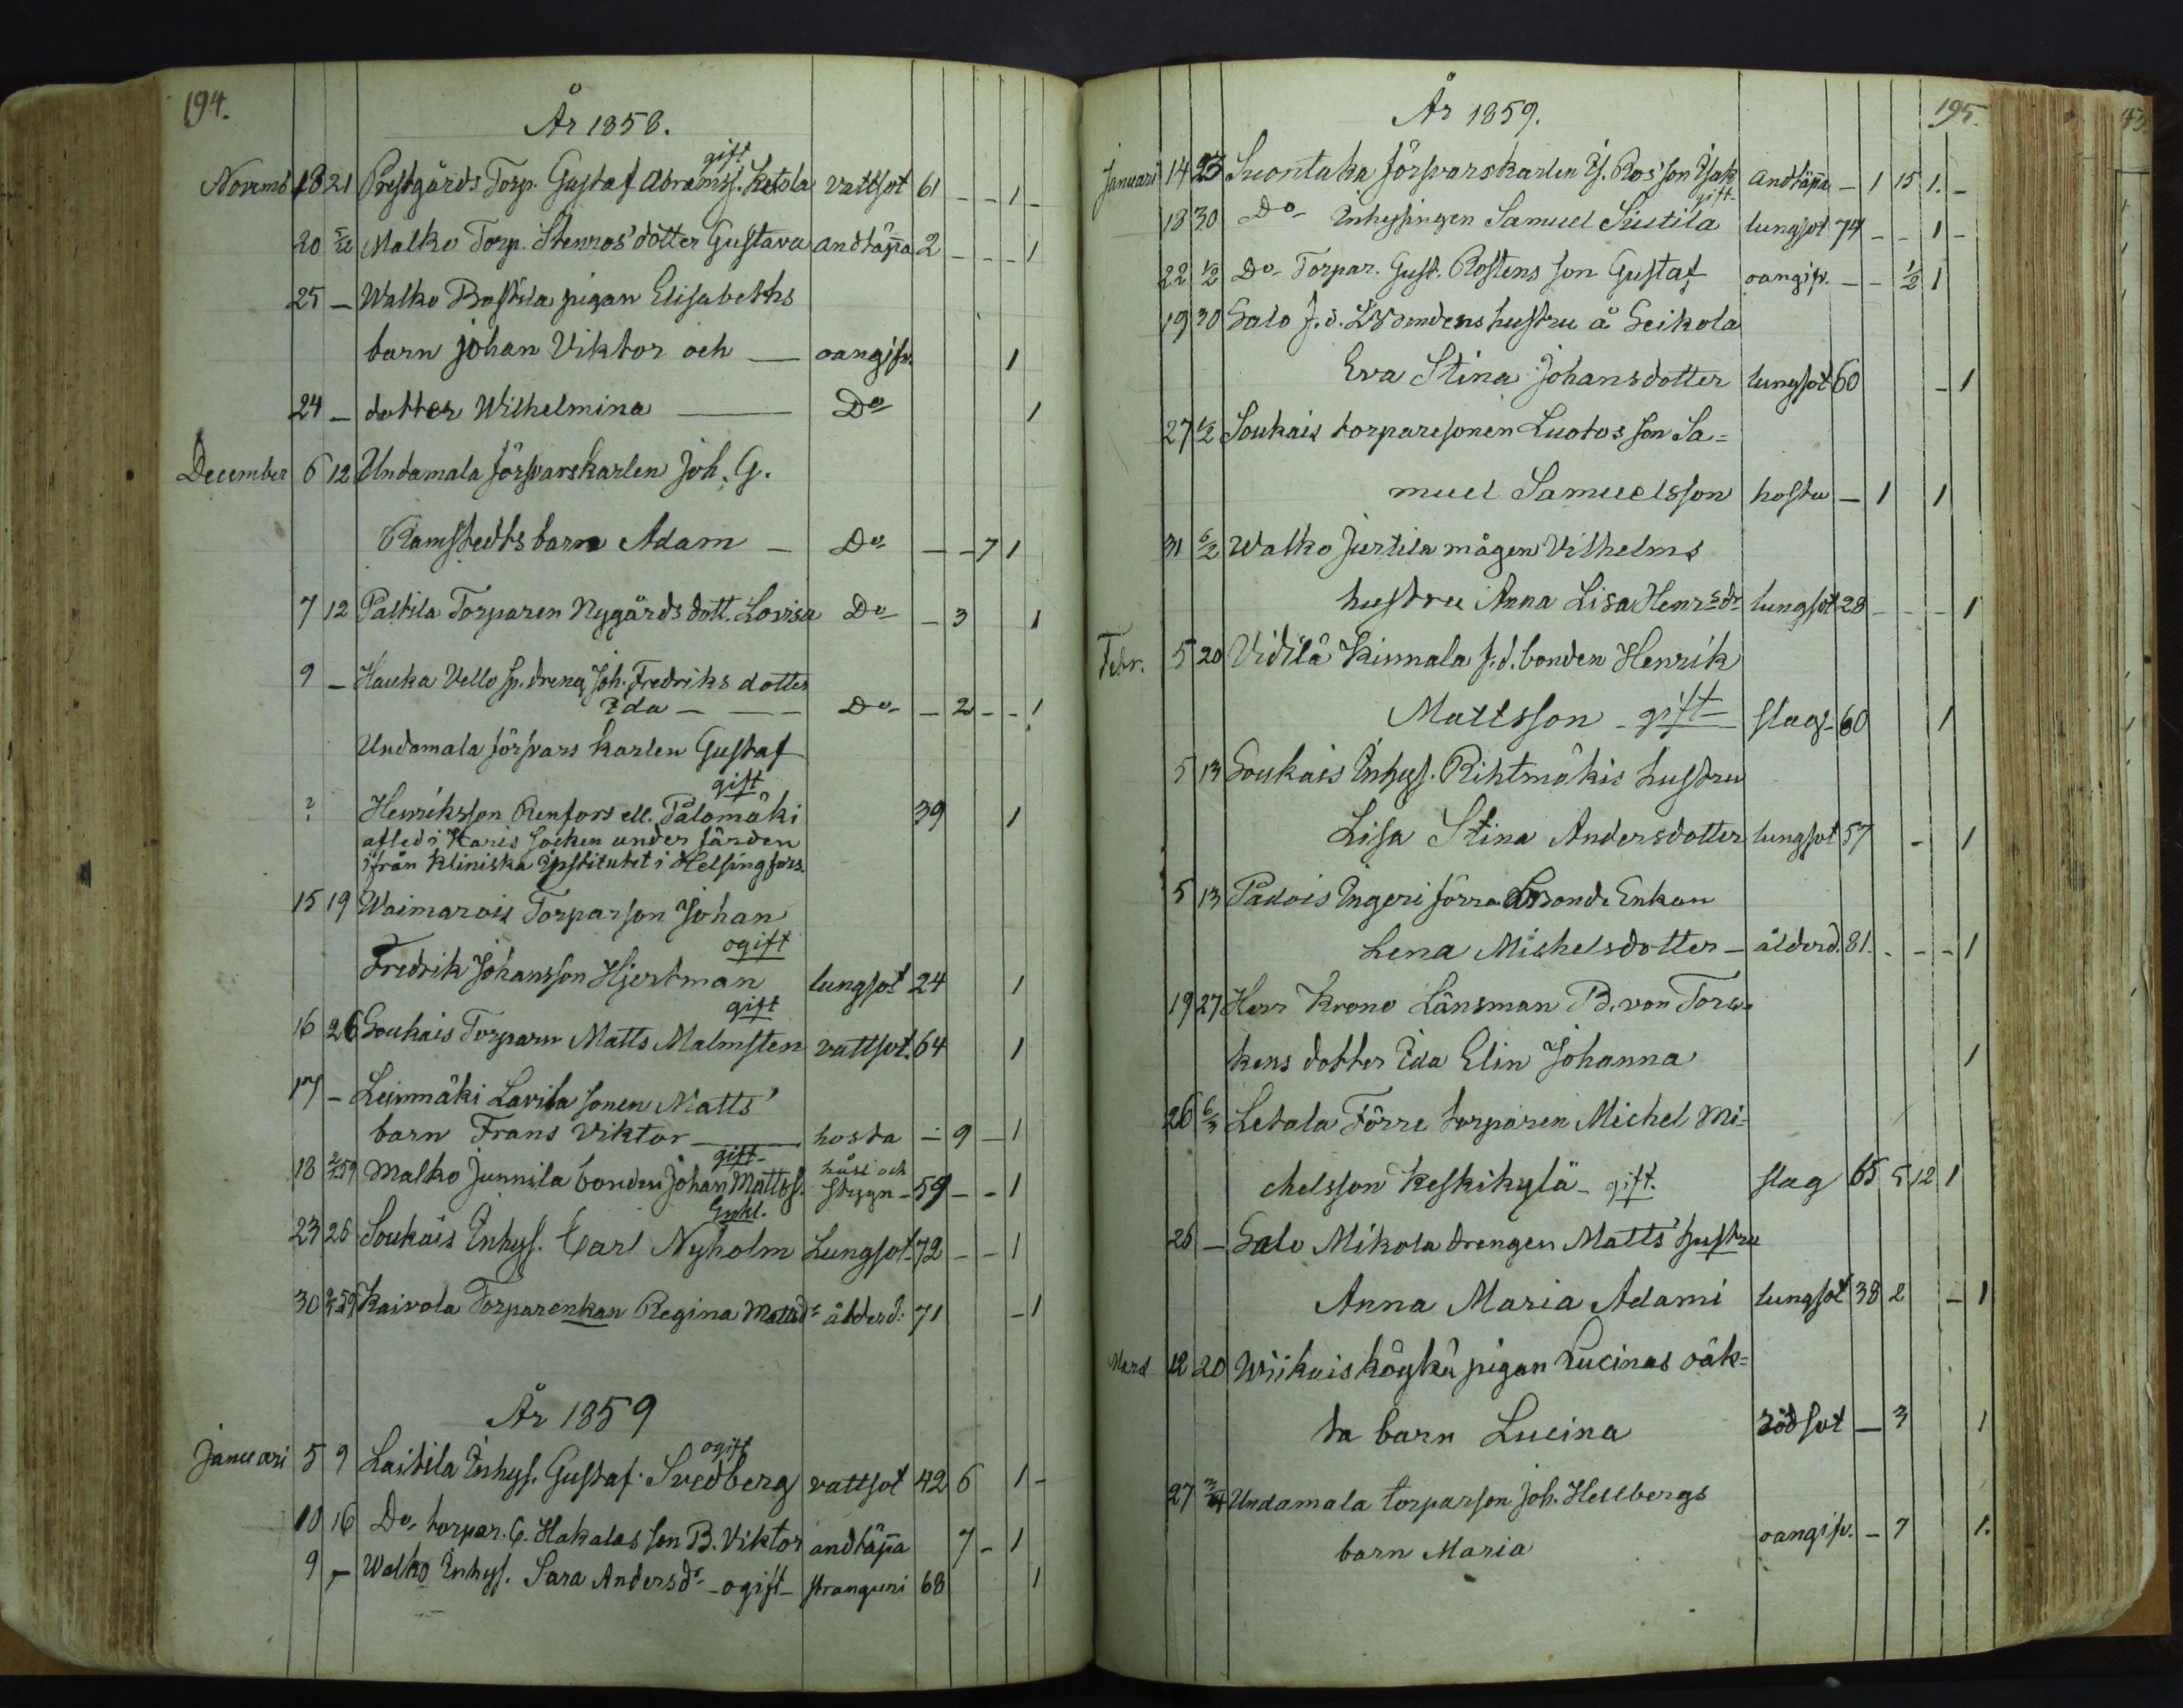 194.
År 1858.
gift
Novemb. 18 21 Prestgårds Torp. Gustaf Abramss. Ketola vattsot 61 - - 1 -
20 5/12 Malko Torp. Stenros' dotter Gustava andtäpa 2 - - - 1
25 - Walko Bastila pigan Elisabeths
barn Johan Viktor och - oangifv. 1
24 - dotter Wilhelmina - Do 1
December 6 12 Undamala försvarskarlen Joh. G.
Ramstedts barn Adam - Do - - 7 1
7 12 Paltila Torparen Nygårds dott. Lovisa Do - 3 1
9 - Hauka Vello sp. dreng Joh. Fredriks dotter
Ida - - - Do - 2 - - 1
Undamala försvars karlen Gustaf
gift
? Henriksson Renfors ell. Palomäki 39 1
afled i Karis socken under färden
ifrån Kliniska Institutet i Helsingfors.
15 19 Waimarois Torparson Johan
ogift
Fredrik Johansson Hjertman lungsot 24 1
gift
16 26 Soukais Torparen Matts Malmsten vattsot. 64 1
17 - Leinmäki Lavila sonen Matts'
barn Frans Viktor - hosta - 9 - 1
gift - håll och
18 2/1 59 Malko Junnila bonden Johan Mattss. stygn - 59 - - 1
Enkl.
23 26 Soukais Inhys. Carl Nyholm Lungsot 72 - - 1
30 2/1 59 Kaivola Torparenkan Regina Mattsdr ålderd. 71 - 1
År 1859
ogift
Januari 5 9 Laitila Inhys. Gustaf Svedberg vattsot 42 6 1 -
10 16 Do torpar. G. Hakalas son B. Viktor andtäpa 7 - 1
9 - Walko Inhys. Sara Andersdr - ogift - stranguri 68 1
År 1859.
195.
Januari 14 23 Suontaka försvarskarlen Is. Ros' son Isak andtäpa - 1 15 1. -
gift -
18 30 Do Inhysingen Samuel Siutila lungsot 74 - - 1 -
22 1/2 Do Torpar. Gust. Rostens son Gustaf oangifv. - - 1/2 1
19 30 Salo f.d. hustru å Seikola
Eva Stina Johansdotter lungsot 60 - 1
27 6/2 Soukais torparesonen Luotos son Sa=
muel Samuelsson hosta - 1 1
31 6/2 Walko Jurtila mågen Vilhelms
hustru Anna Lisa Henrsdr lungsot 28 - - - 1
Febr. 5 20 Vidilä Kinnala f.d. bonden Henrik
Mattsson - gift - slag - 60 1
5 13 Soukais Inhys. Rihtmäkis hustru
Lisa Stina Andersdotter lungsot 57 - 1
5 13 Padois Ingeri förra Enkan
Lena Michelsdotter - ålderd. 81. - - - 1
19 27 Herr Krono Länsman B. von Torc-
kens dotter Ida Elin Johanna 1
26 6/3 Letala Förre torparen Michel Mi=
chelsson Keskikylä - gift. slag 65 5 12 1
26 - Salo Mikola drengen Matts' hustru
Anna Maria Adami lungsot 38 2 - 1
Mars 12 20 Wiikais Köykä pigan Lucinas oäk=
ta barn Lucina rödsot - 3 1
27 3/4 Undamala torparson Joh. Hellbergs
barn Maria oangifv. - 7 1.